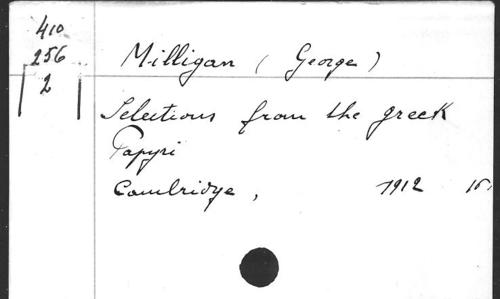 410
256
2
Milligan (George)
Selections from the greek
Papyri
Cambridge, 1912